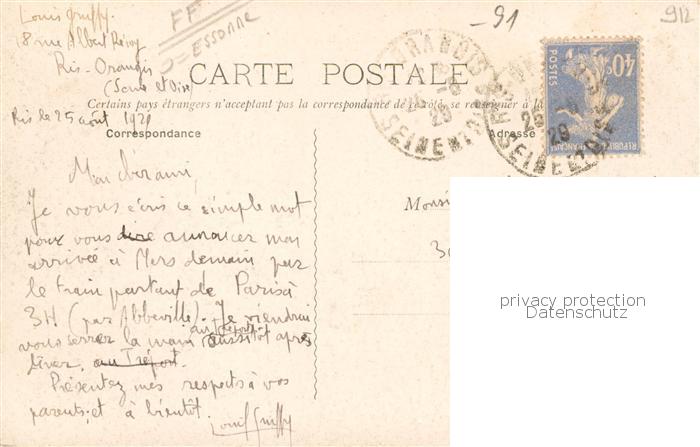 Louis Griffy
18 rue Albert Rémy
Ris-Orangis
(Seine et Oise)
FF
ESSONNE
-91
912
CARTE POSTALE
Certains pays étrangers n'acceptent pas la correspondance de ce côté, se renseigner à la
Ris le 25 août 1929
Correspondance
Adresse
Mon cher ami,
Je vous écris ce simple mot
pour vous dire annoncer mon
arrivée à Mers demain par
le train partant de Paris à
3H (par Abbeville). Je viendrai
vous serrer la main au Tréport aussitôt après
dîner, au Tréport.
Présentez mes respects à vos
parents, et à bientôt.
Louis Griffy
Monsi
30
ORANGIS
29
SEINE ET OISE
ORANGIS
25 -8
29
SEINE ET OISE
40c
POSTES
REPUBLIQUE FRANÇAISE
privacy protection
Datenschutz